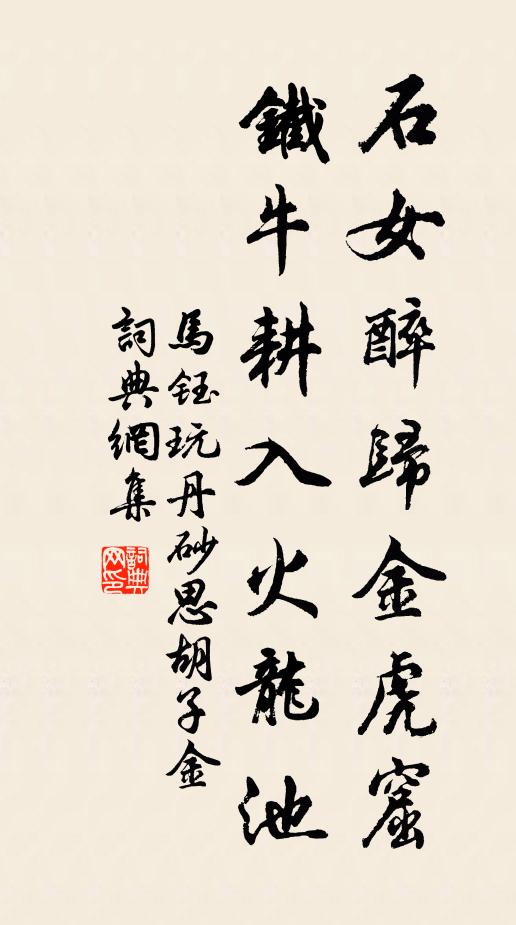 石女醉歸金虎窟
鐵牛耕入火龍池
馬鈺玩丹砂思胡子金
詞典網集
詞典网印